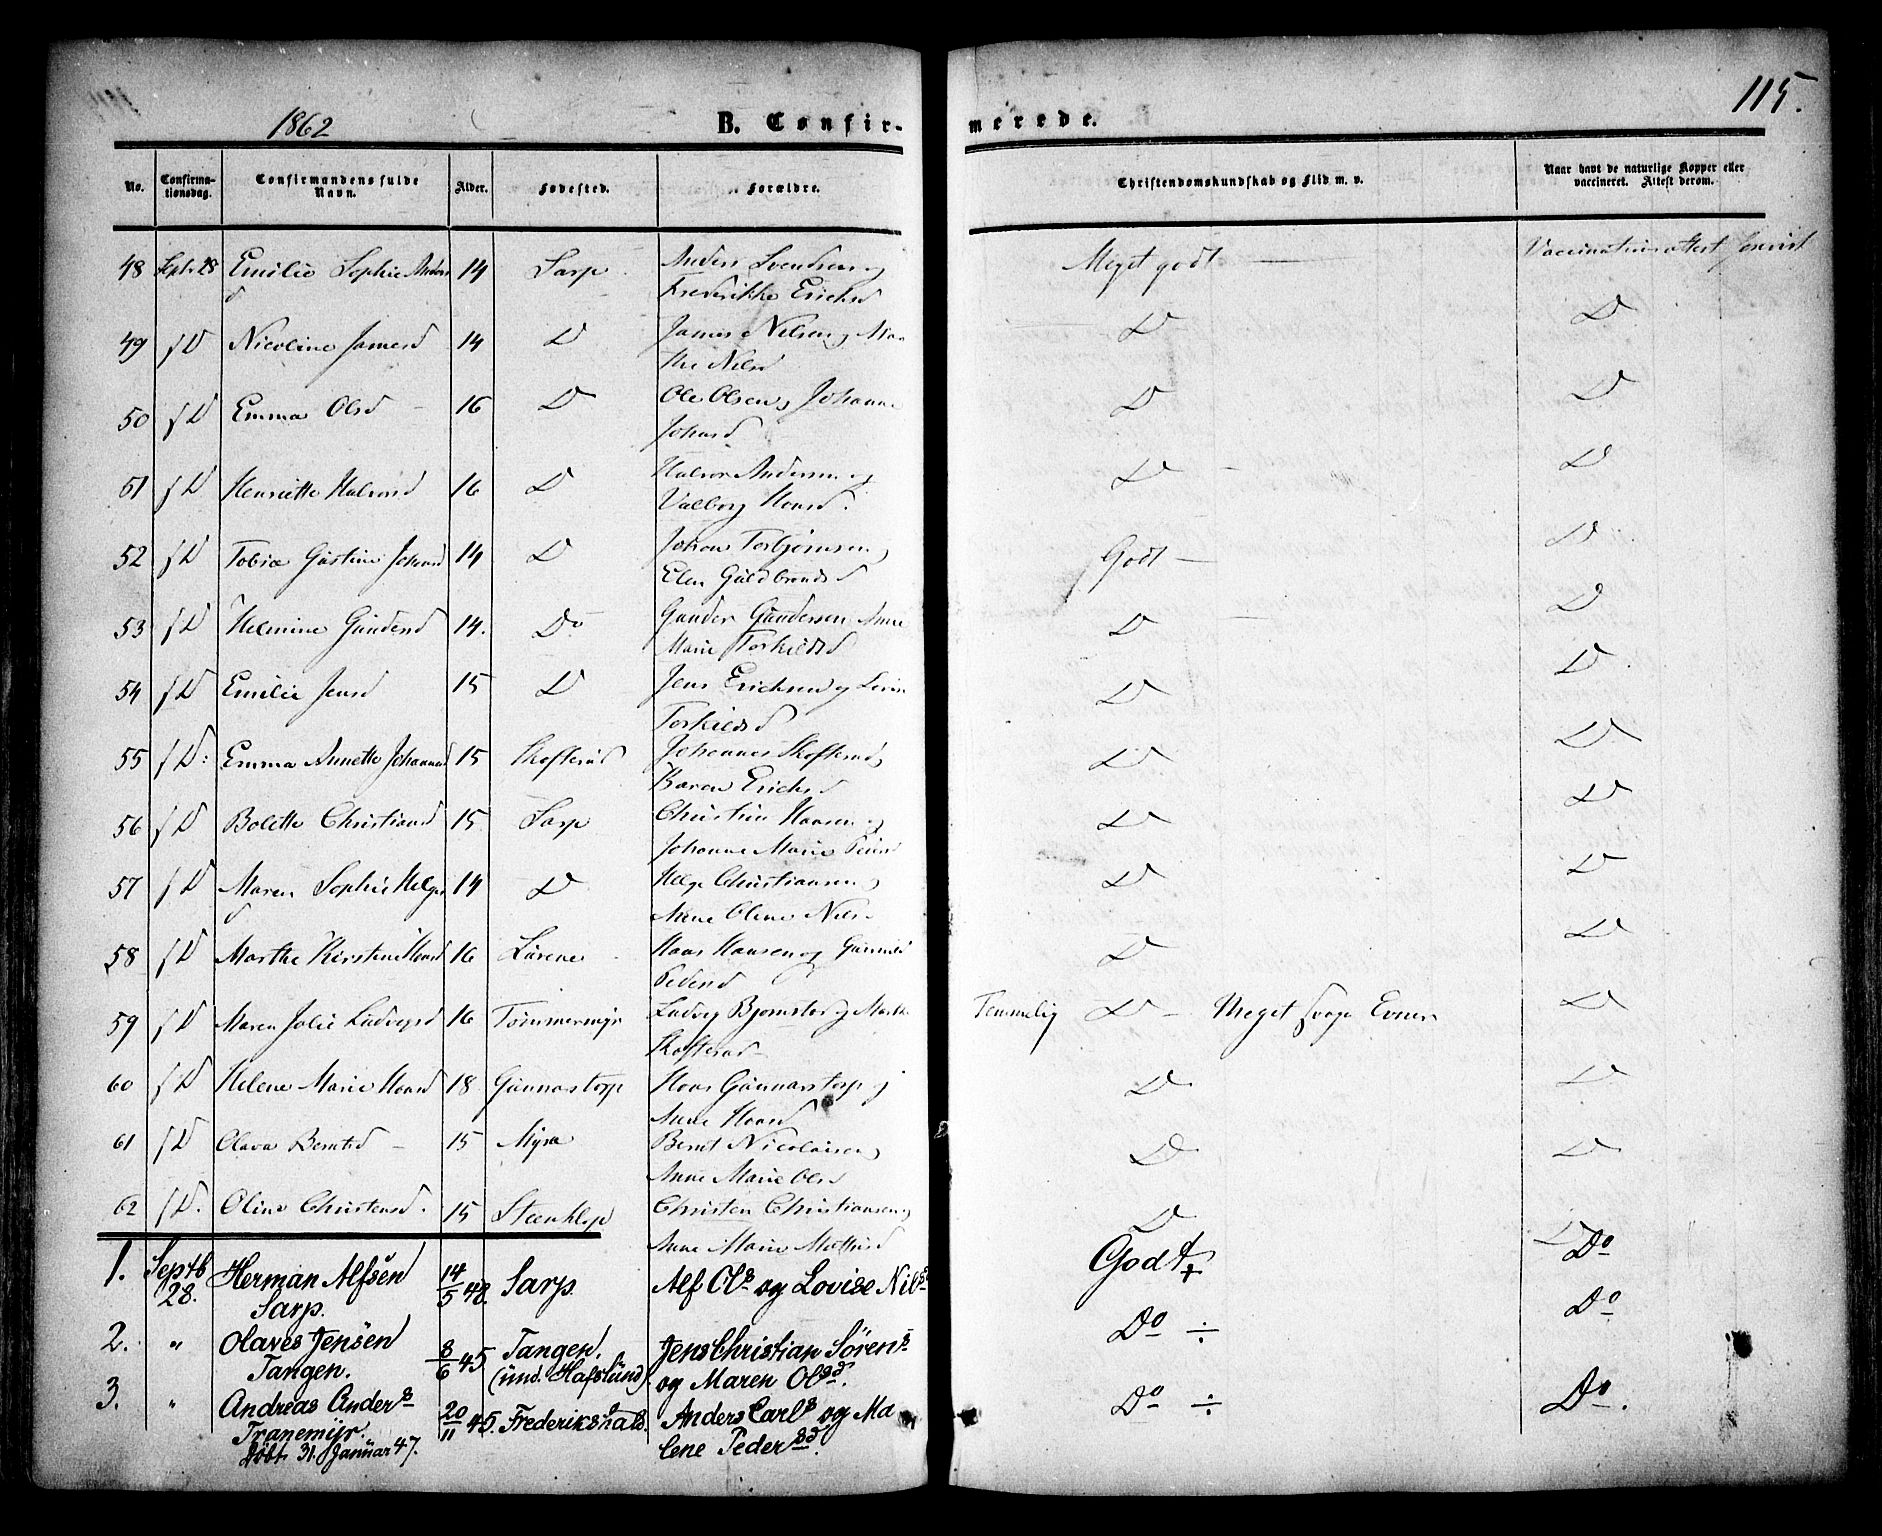 115.
1862
B. Confirmerede.
No. Confirmationsdag. Confirmandens fulde Navn. Alder. Fødested. Forældre. Christendomskundskab og Flid m. v. Naar havt de naturlige Kopper eller vaccineret. Attest derom.
48 Sept. 28 Emilie Sophie Anders 14 Sarp Anders Svendsen og Meget godt Vaccinationsattest forevist
d Frederikke Ericsd
49 f D Nicoline Jamesd 14 D James Nilsen, Mar D D
the Nilsd
50 f D Emma Olsd 16 D Ole Olsen, Johanne D D
Johansd
51 f D Henriette Halvorsd 16 D Halvor Andersen og D D
Valborg Hansd.
52 f D Tobia Gustine Johansd 14 D Johan Torbjørnsen, Godt D
Elen Guldbrandsd
53 f D Helmine Gundersd 14. Do Gunder Gundersen Anne D D
Marie Torkildsd
54 f D Emilie Jensd 15 D Jens Ericksen og D D
Torkildsd
55 f D: Emma Annette Johannesd 15 Skofterud Johannes Skofterud, D D
Karen Ericsd
56 f D Bolette Christiansd 15 Sarp Christian Hansen og D D
Johanne Marie
57 f D Maren Sophie Helges 14 D Helge Christiansen, D D
d Anne Oline Nils
58 f D Marthe Kirstine Hansd 16 Lürene Hans Hansen og D D
Pedersd
59 f D Maren Julie Ludvigsd 16 Tømmermyr Ludvig Bjørnstad og Marthe Temmelig D Meget svage Evner D
Skofterud
60 f D Helene Marie Hansd 18 Gunnarstorp Hans Gunnarstorp, D D
Anne Hansd
61 f D Olava Berntsd 15 Myra Bernt Nicolaisen, D D
Anne Marie Olsd
62 f D. Oline Christensd. 15 Steenklep Christen Christiansen, D D
Anne Marie Mathisd
1. Septb 28. Herman Alfsen 14/5 48. Sarp. Alf Ols og Lovise Nils Godt Do
Sarp.
2. " Olaves Jensen 8/6 45 Tangen. Jens Christian Sørens Do ÷ Do
Tangen. (und. Hafslund) og Maren Olsd.
3. " Andreas Anders 20/11 45. Frederikshald. Anders Carls og Ma Do ÷ Do.
Tranemyr. lene Pedersd.
Døbt 31. Januar 47.